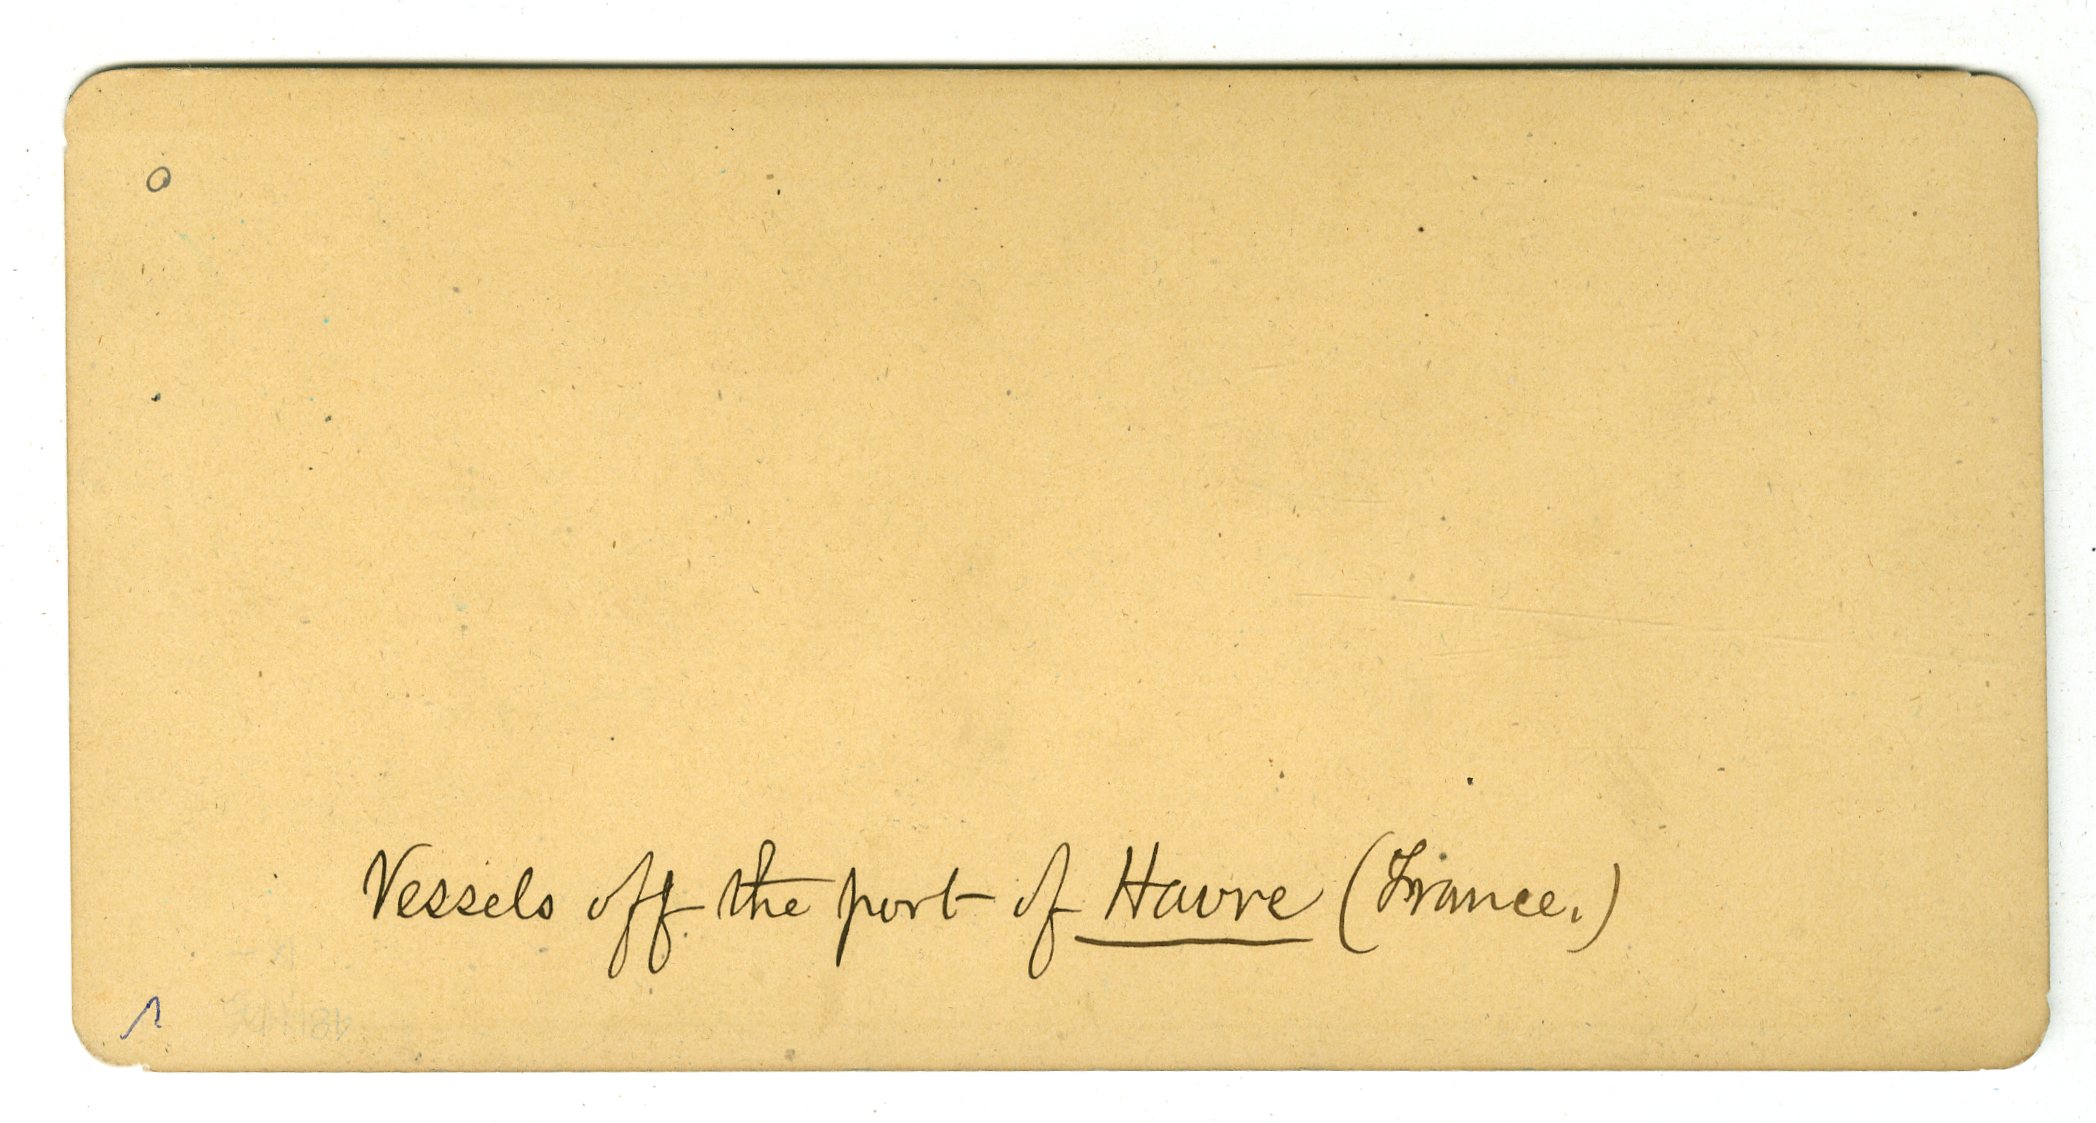 Vessels off the port of Havre (France.)